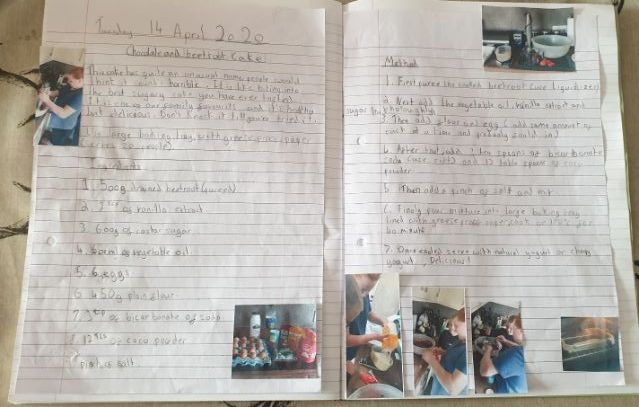 Tuesday 14 April 2020
Chocolate and beetroot Cake
This cake has quite an unusual name people would
think it horrible. but like biting into
the best sugary cake you have ever tasted.
our family favourite and it is healthy
but delicious. Don't knock it till you've tried it.
large baking tray with grease paper
(serves 20 people).
Ingredients
1. 500g drained beetroot (pureed).
2. of vanilla extract
3. 600g of castor sugar
4. of vegetable oil.
5. 6 eggs
6. 450g plain flour.
7. 3 tsp of bicarbonate of soda
8. 12 of coco powder
pinch of salt.
Method
1. First puree the cooked beetroot (use liquidizer)
2. Next add the vegetable oil, vanilla extract and
sugar mix thoroughly
3. Then add flour and egg (add some amount of
each at a time and gradually mix in)
4. After that, add 3 tea spoons of bicarbonate
soda (use sift) and 12 table spoons of coco
powder
5. Then add a pinch of salt and mix.
6. Finaly pour mixture into large baking tray
lined with grease proof paper, cook at 170°c for
40 minutes
7. Once cooled serve with natural yogurt or cherry
yogurt, Delicious!